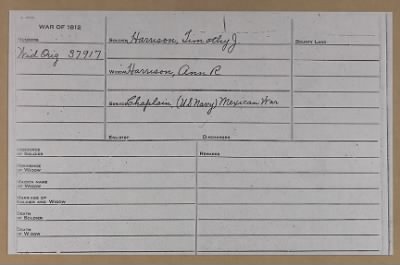 WAR OF 1812
NUMBERS
Wid Orig 37917
SOLDIER Harrison, Timothy J.
WIDOW Harrison, Ann R
SERVICE Chaplain (US Navy) Mexican War
ENLISTED DISCHARGED
BOUNTY LAND
RESIDENCE
OF SOLDIER
RESIDENCE
OF WIDOW
MAIDEN NAME
OF WIDOW
MARRIAGE OF
SOLDIER AND WIDOW
DEATH
OF SOLDIER
DEATH
OF WIDOW
REMARKS